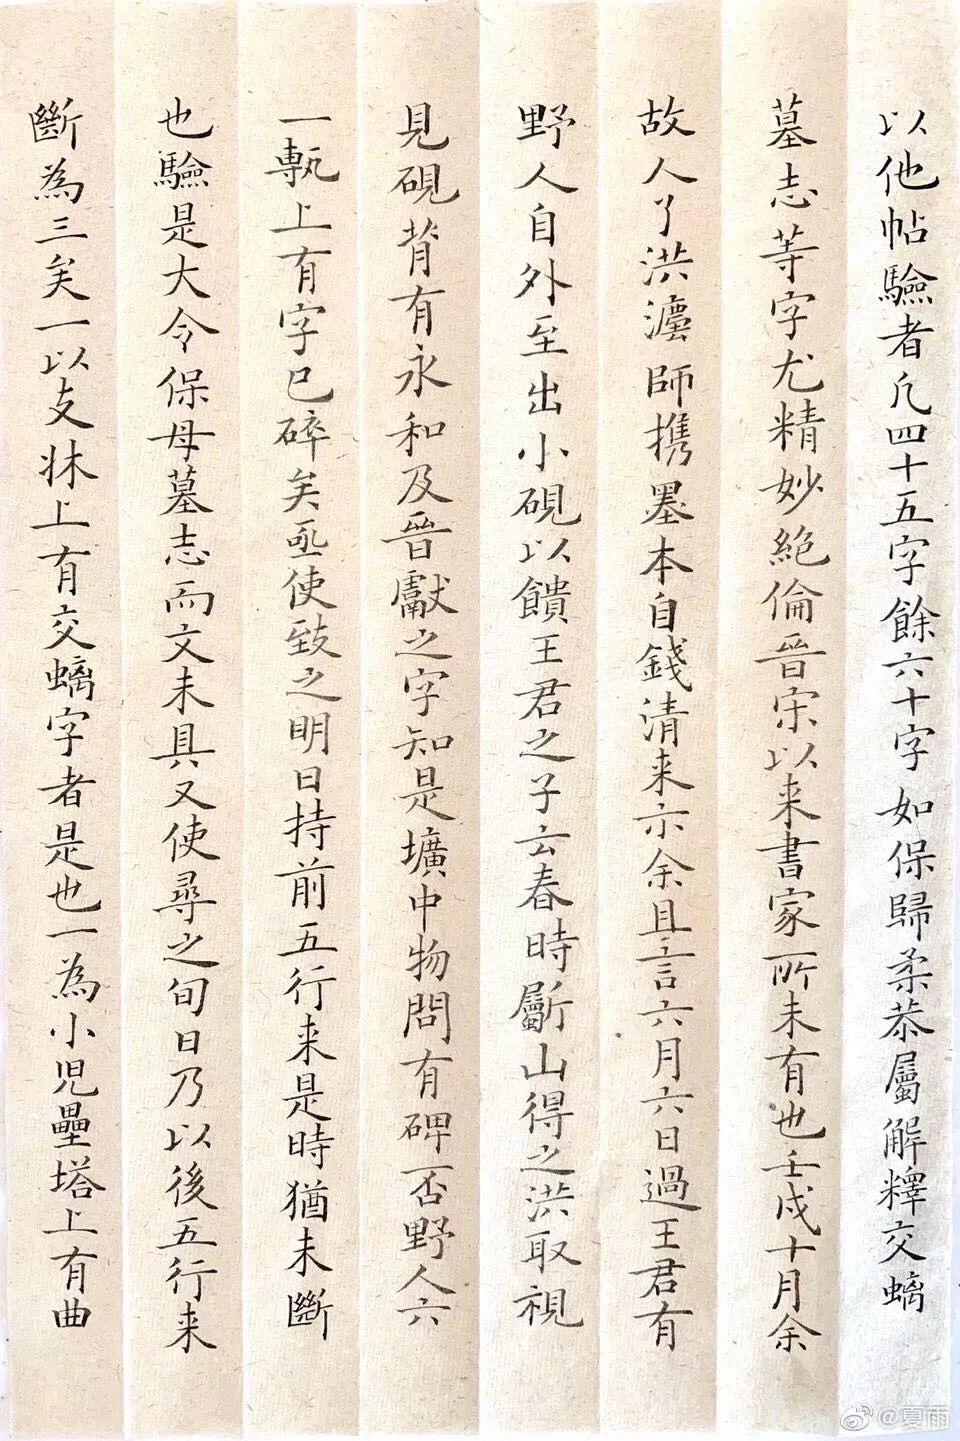 以他帖驗者凡四十五字餘六十字如保歸柔恭屬解釋交螭
墓志等字尤精妙絶倫晉宋以来書家所未有也壬戌十月余
故人了洪瀍師携墨本自錢清来示余且言六月六日過王君有
野人自外至出小硯以饋王君之子云春時斸山得之洪取視
見硯背有永和及晉獻之字知是壙中物問有碑否野人云
一甎上有字已碎矣亟使致之明日持前五行来是時猶未斷
也驗是大令保母墓志而文未具又使尋之旬日乃以後五行来
斷為三矣一以支牀上有交螭字者是也一為小児壘塔上有曲
@夏雨